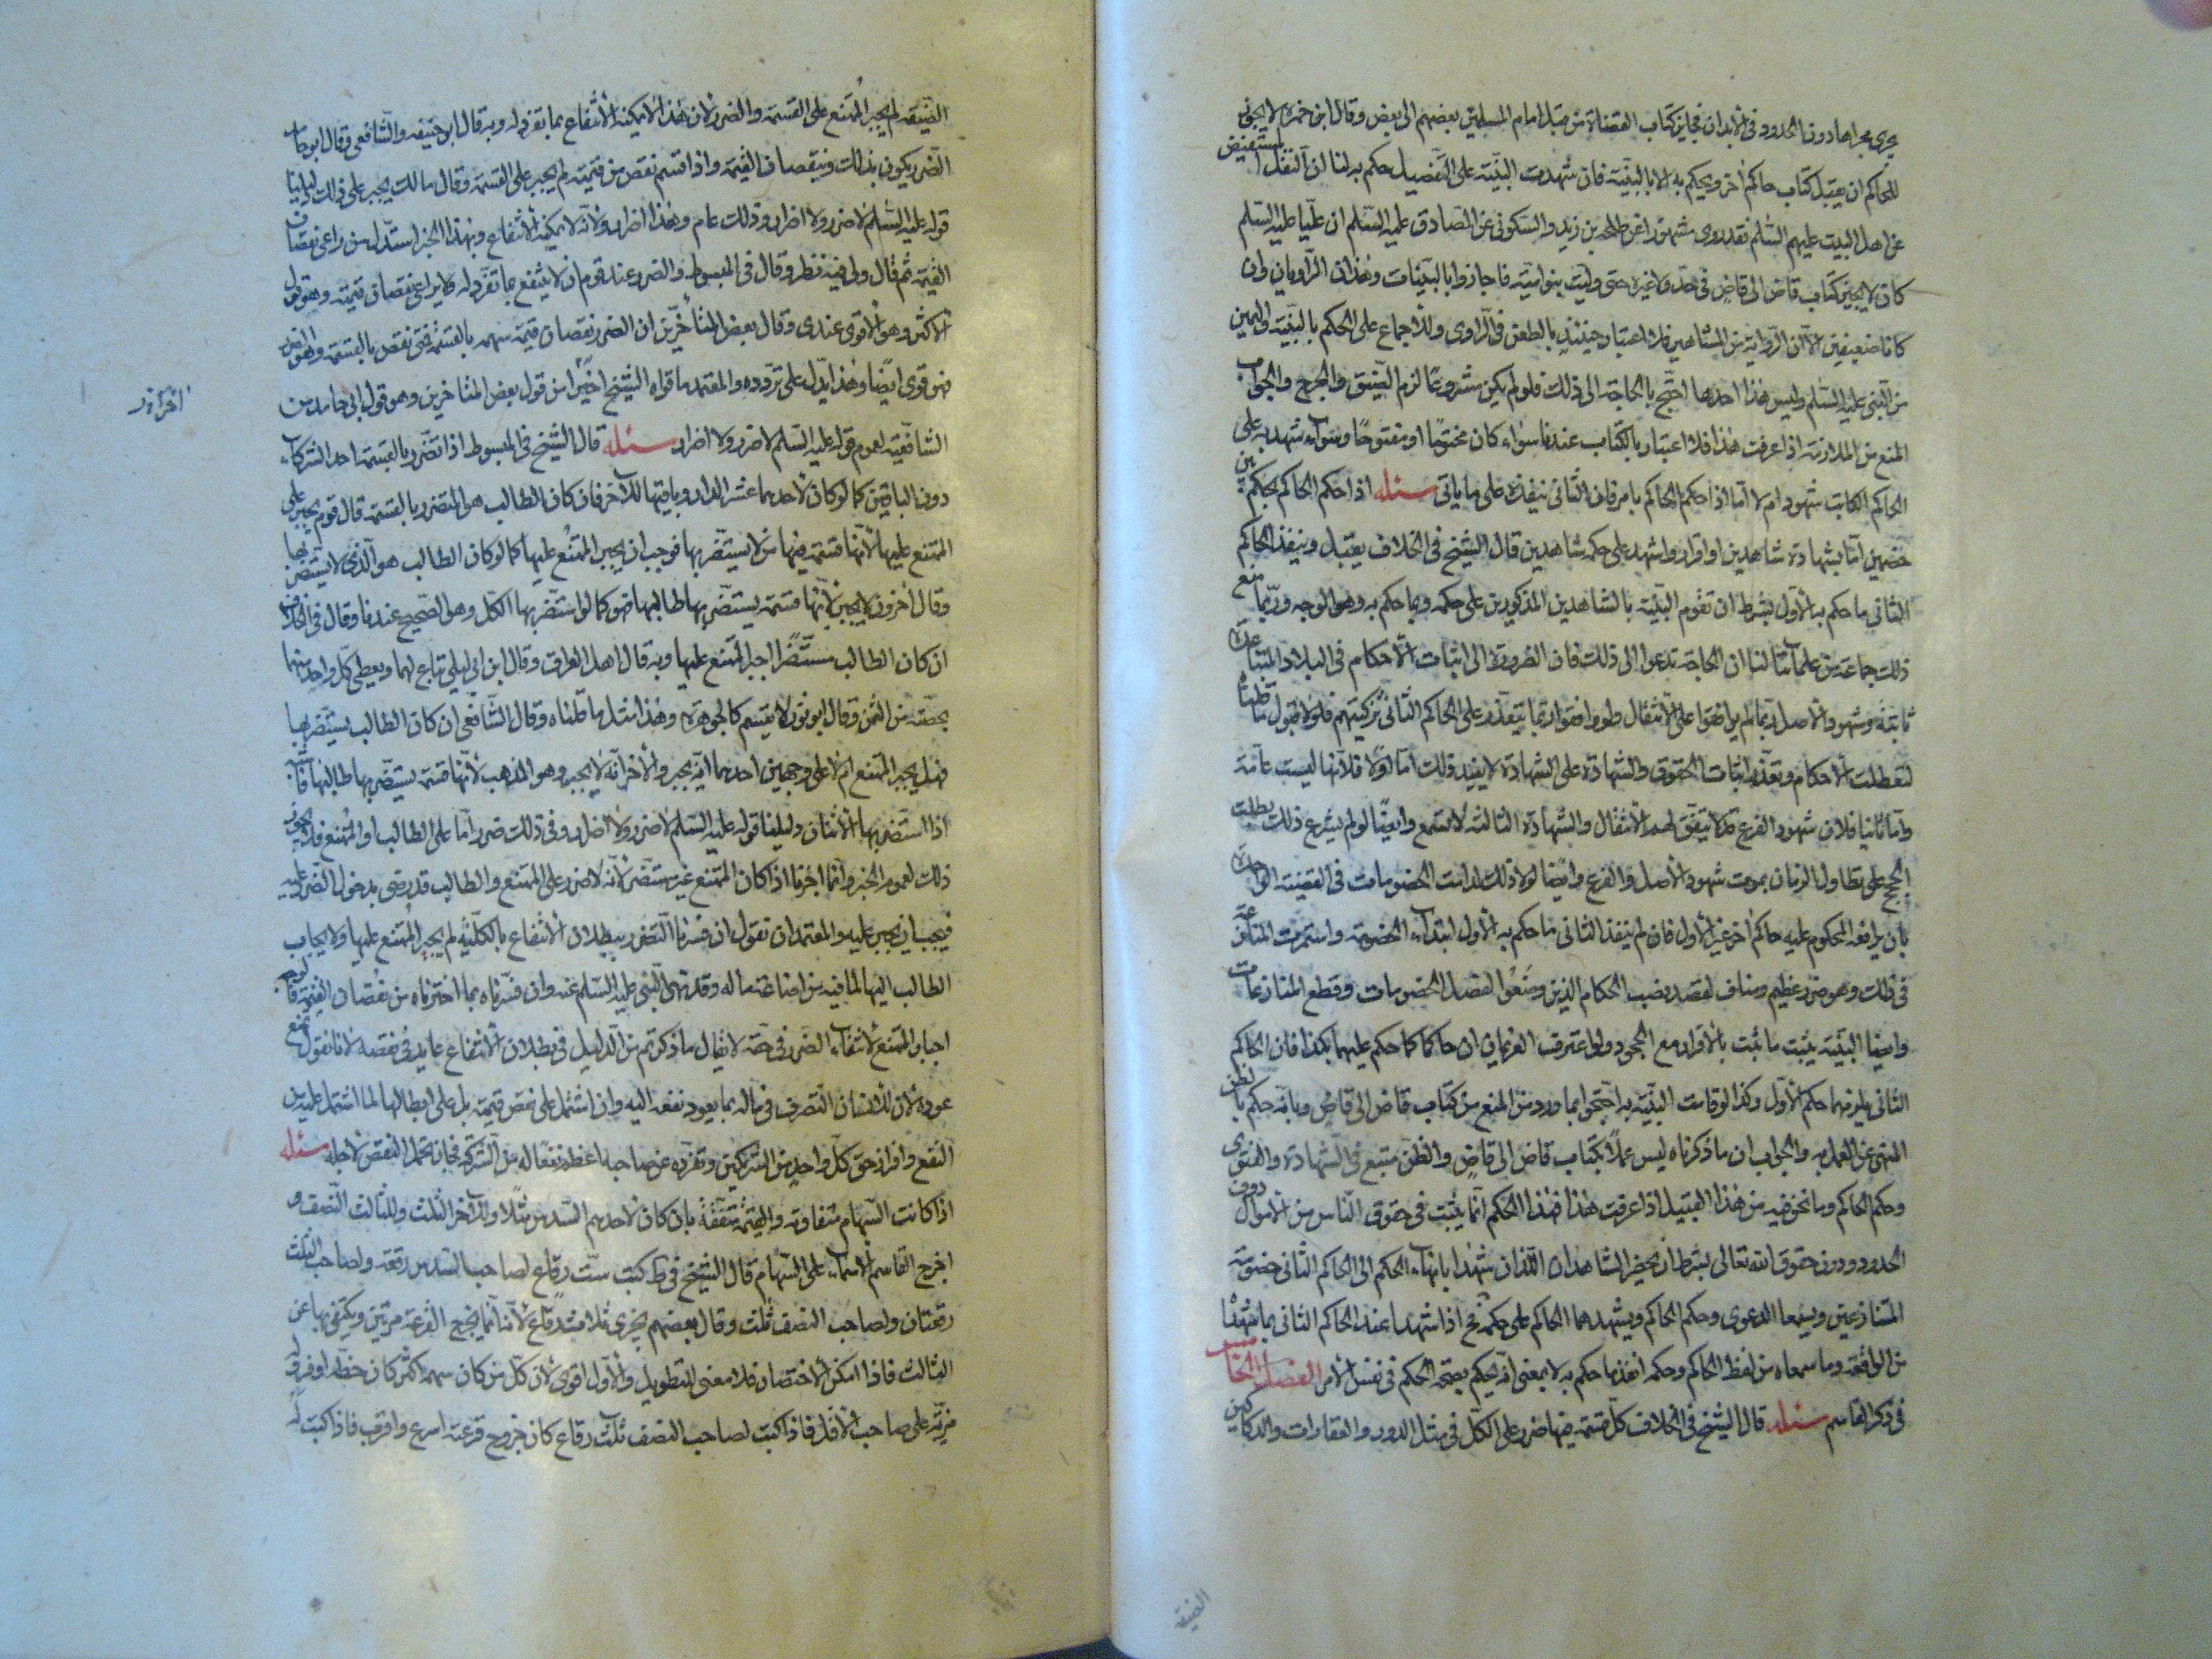 يجرى مجراها دون الحدود فى الأبدان فجايز كتاب القضاة من قبل امام المسلمين بعضهم الى بعض وقال ابن حمزه لا يجوز
للحاكم ان يقبل كتاب حاكم اخر ويحكم به الا بالبينة فان شهدت البينة على التفصيل حكم به لنا ان النقل المستفيض
عن اهل البيت عليهم السلم فقد روى مشهورا عن طلحه بن زيد والسكونى عن الصادق عليه السلم ان عليا عليه السلم
كان لا يجيز كتاب قاض الى قاض فى حد ولا غيره حتى وليت بنو امية فاجازوا بالبينات وهذان الراويان وان
كانا ضعيفين الا ان الرواية من المشاهير فلا اعتبار حينئذ بالطعن فى الراوى وللاجماع على الحكم بالبينة واليمين
من النبى عليه السلم وليس هذا احدها احتج بالحاجة الى ذلك فلو لم يكن مشروعا لزم الضيق والحرج والجواب
المنع من الملازمة اذا عرفت هذا فلا اعتبار بالكتاب عندنا سواء كان مختوما او مفتوحا وسواء شهد به على
الحاكم الكاتب شهود ام لا اما اذا حكم الحاكم بامر فان الثانى ينفذه على ما ياتى مسئله اذا حكم الحاكم بحكم بين
خصمين اما بشهادة شاهدين او اقرار واشهد على حكمه شاهدين قال الشيخ فى الخلاف يقبل وينفذ الحاكم
الثانى ما حكم به الأول بشرط ان تقوم البينة بالشاهدين المذكورين على حكمه وبما حكم به وهو الوجه وربما منع
ذلك جماعة من علمائنا لنا ان الحاجة تدعوا الى ذلك فان الضرورة الى اثبات الأحكام فى البلاد المتباعدة
ثابتة وشهود الأصل ربما لم يوافقوا على الأنتقال ولو وافقوا ربما يتعذر على الحاكم الثانى تزكيتهم فلولا قبول
لتعطلت الأحكام وتعذر اثبات الحقوق والشهادة على الشهادة لا يفيد ذلك اما اولا فلانها ليست عامة
واما ثانيا فلان شهود الفرع قد لا يتفق لهم الأنتقال والشهادة الثالثة لا تسمع وايضا لو لم يشرع ذلك بطلت
الحجج على تطاول الزمان بموت شهود الأصل والفرع وايضا لولا ذلك لدامت الخصومات فى القضية الواحدة
بان يرافعه المحكوم عليه حاكم اخر غير الأول فان لم ينفذ الثانى ما حكم به الأول ابتداء الخصومة واستمرت المنازعة
فى ذلك وهو ضرر عظيم ومناف لقصد نصب الحكام الذين وضعوا لفصل الخصومات وقطع المنازعات
وايضا البينة يثبت ما ثبت بالأقرار مع الجحود ولو اعترف الغريمان ان حاكما حكم عليهما بكذا فان الحاكم
الثانى يلزمهما حكم الأول وكذا لو قامت البينة به احتجوا بما ورد من المنع من كتاب قاض الى قاض وبانه حكم بالظن
المنهى عن العمل به والجواب ان ما ذكرناه ليس عملا بكتاب قاض الى قاض والظن متبع فى الشهادة والفتوى
وحكم الحاكم وما نحن فيه من هذا القبيل اذا عرفت هذا فهذا الحكم انما يثبت فى حقوق الناس من الأموال دون
الحدود ودون حقوق الله تعالى بشرط ان يحضر الشاهدان اللذان شهدا بانهاء الحكم الى الحاكم الثانى خصومة
المتنازعين ويسمعا الدعوى وحكم الحاكم ويشهدهما الحاكم على حكمه فح اذا شهدا عند الحاكم الثانى بما شهدا
من الواقعة وما سمعاه من لفظ الحاكم وحكمه انفذ ما حكم به لا بمعنى انه يحكم بصحة الحكم فى نفس الأمر الفصل الخامس
فى ذكر القاسم مسئله قال الشيخ فى الخلاف كل قسمة فيها ضرر على الكل فى مثل الدور والعقارات والدكاكين
الضيقة
الضيقه لم يجبر الممتنع على القسمة والضرر لان هذا لا يمكنه الأنتفاع بما يفرد له وبه قال ابو حنيفه والشافعى وقال ابو حامد
الضرر يكون بذلك وبنقصان القيمة واذا قسم نقص من قيمته لم يجبر على القسمة وقال مالك يجبر على ذلك دليلنا
قوله عليه السلم لا ضرر ولا اضرار وذلك عام وهذا اضرار ولانه لا يمكنه الأنتفاع وبهذا الخبر استدل من راعى نقصان
القيمة ثم قال ولى فيه نظر وقال فى المبسوط والضرر عند قوم ان لا ينتفع بما تفرد له ولا يراعى نقصان قيمته وهو قول
الأكثر وهو الأقوى عندى وقال بعض المتأخرين ان الضرر نقصان قيمة سهمه بالقسمة فمتى نقص بالقسمة
فهو قوى ايضا وهذا يدل على تردده والمعتمد ما قواه الشيخ اخيرا من قول بعض المتاخرين وهو قول ابى حامد من
الشافعية لعموم قوله عليه السلم لا ضرر ولا اضرار مسئله قال الشيخ فى المبسوط اذا تضرر بالقسمة احد الشركاء
دون الباقين كما لو كان لأحدهما عشر الدار وباقيها للاخر فان كان الطالب هو المتضرر بالقسمة قال قوم يجبر على
الممتنع عليها لأنها قسمة فيها من لا يستضر بها فوجب ان يجبر الممتنع عليها كما لو كان الطالب هو الذى لا يستضر بها
وقال اخرون لا يجبر لأنها قسمة يستضر بها طالبها فهو كما لو استضر بها الكل وهو الصحيح عندنا وقال فى الخلاف
ان كان الطالب مستضرا اجبر الممتنع عليها وبه قال اهل العراق وقال ابن ابى ليلى تباع لهما ويعطى كل واحد منهما
بحصته من الثمن وقال ابو ثور لا يقسم كالجوهرة وهذا مثل ما قلناه وقال الشافعى ان كان الطالب يستضر بها
فهل يجبر الممتنع ام لا على وجهين احدهما انه يجبر والأخر انه لا يجبر وهو المذهب لأنها قسمة يستضر بها طالبها
اذا استضر بها الأثنان دليلنا قوله عليه السلم لا ضرر ولا اضرار وفى ذلك ضرر اما على الطالب او الممتنع فلا يجوز
ذلك لعموم الخبر وانما اخبرنا اذا كان الممتنع غير مستضر لأنه لا ضرر على الممتنع والطالب قد رضى بدخول الضرر عليه
فيجب ان يجبر عليه والمعتمد ان نقول ان فسرنا التضرر ببطلان الأنتفاع بالكلية لم يجبر الممتنع عليها ولا يجاب
الطالب اليها لما فيه من اضاعته ماله وقد نهى النبى عليه السلم عنه وان فسرناه بما اخترناه من نقصان القيمة
اجبار الممتنع لأنتفاء الضرر فى حقه لا يقال ما ذكرتم من الدليل فى بطلان الأنتفاع عايد فى نقصه لانا نقول نمنع
عوده لأن للأنسان التصرف فى ماله بما يعود نفعه اليه وان اشتمل على نقص قيمته بل على ابطالها لما اشتمل عليه من
النفع وافراز حق كل واحد من الشريكين وتفرده عن صاحبه اعظم نفعا له من الشركة فجاز تحمل النقص لأجله مسئله
اذا كانت السهام متفاوته والقيمة متفقة بان كان لأحدهم السدس مثلا وللاخر الثلث وللثالث النصف و
اخرج القاسم الأسماء على السهام قال الشيخ فى ط كتب ست رقاع لصاحب السدس رقعة ولصاحب الثلث
رقعتان ولصاحب النصف ثلث وقال بعضهم يجزى ثلاث رقاع لأنه انما يخرج القرعة مرتين ويكتفى بها عن
الثالث فاذا امكن الأختصار فلا معنى للتطويل والأول اقوى لأن كل من كان سهمه اكثر كان حظه اوفر وله
مزية على صاحب الأقل فاذا كتب لصاحب النصف ثلث رقاع كان خروج قرعته اسرع واقرب فاذا كتب له